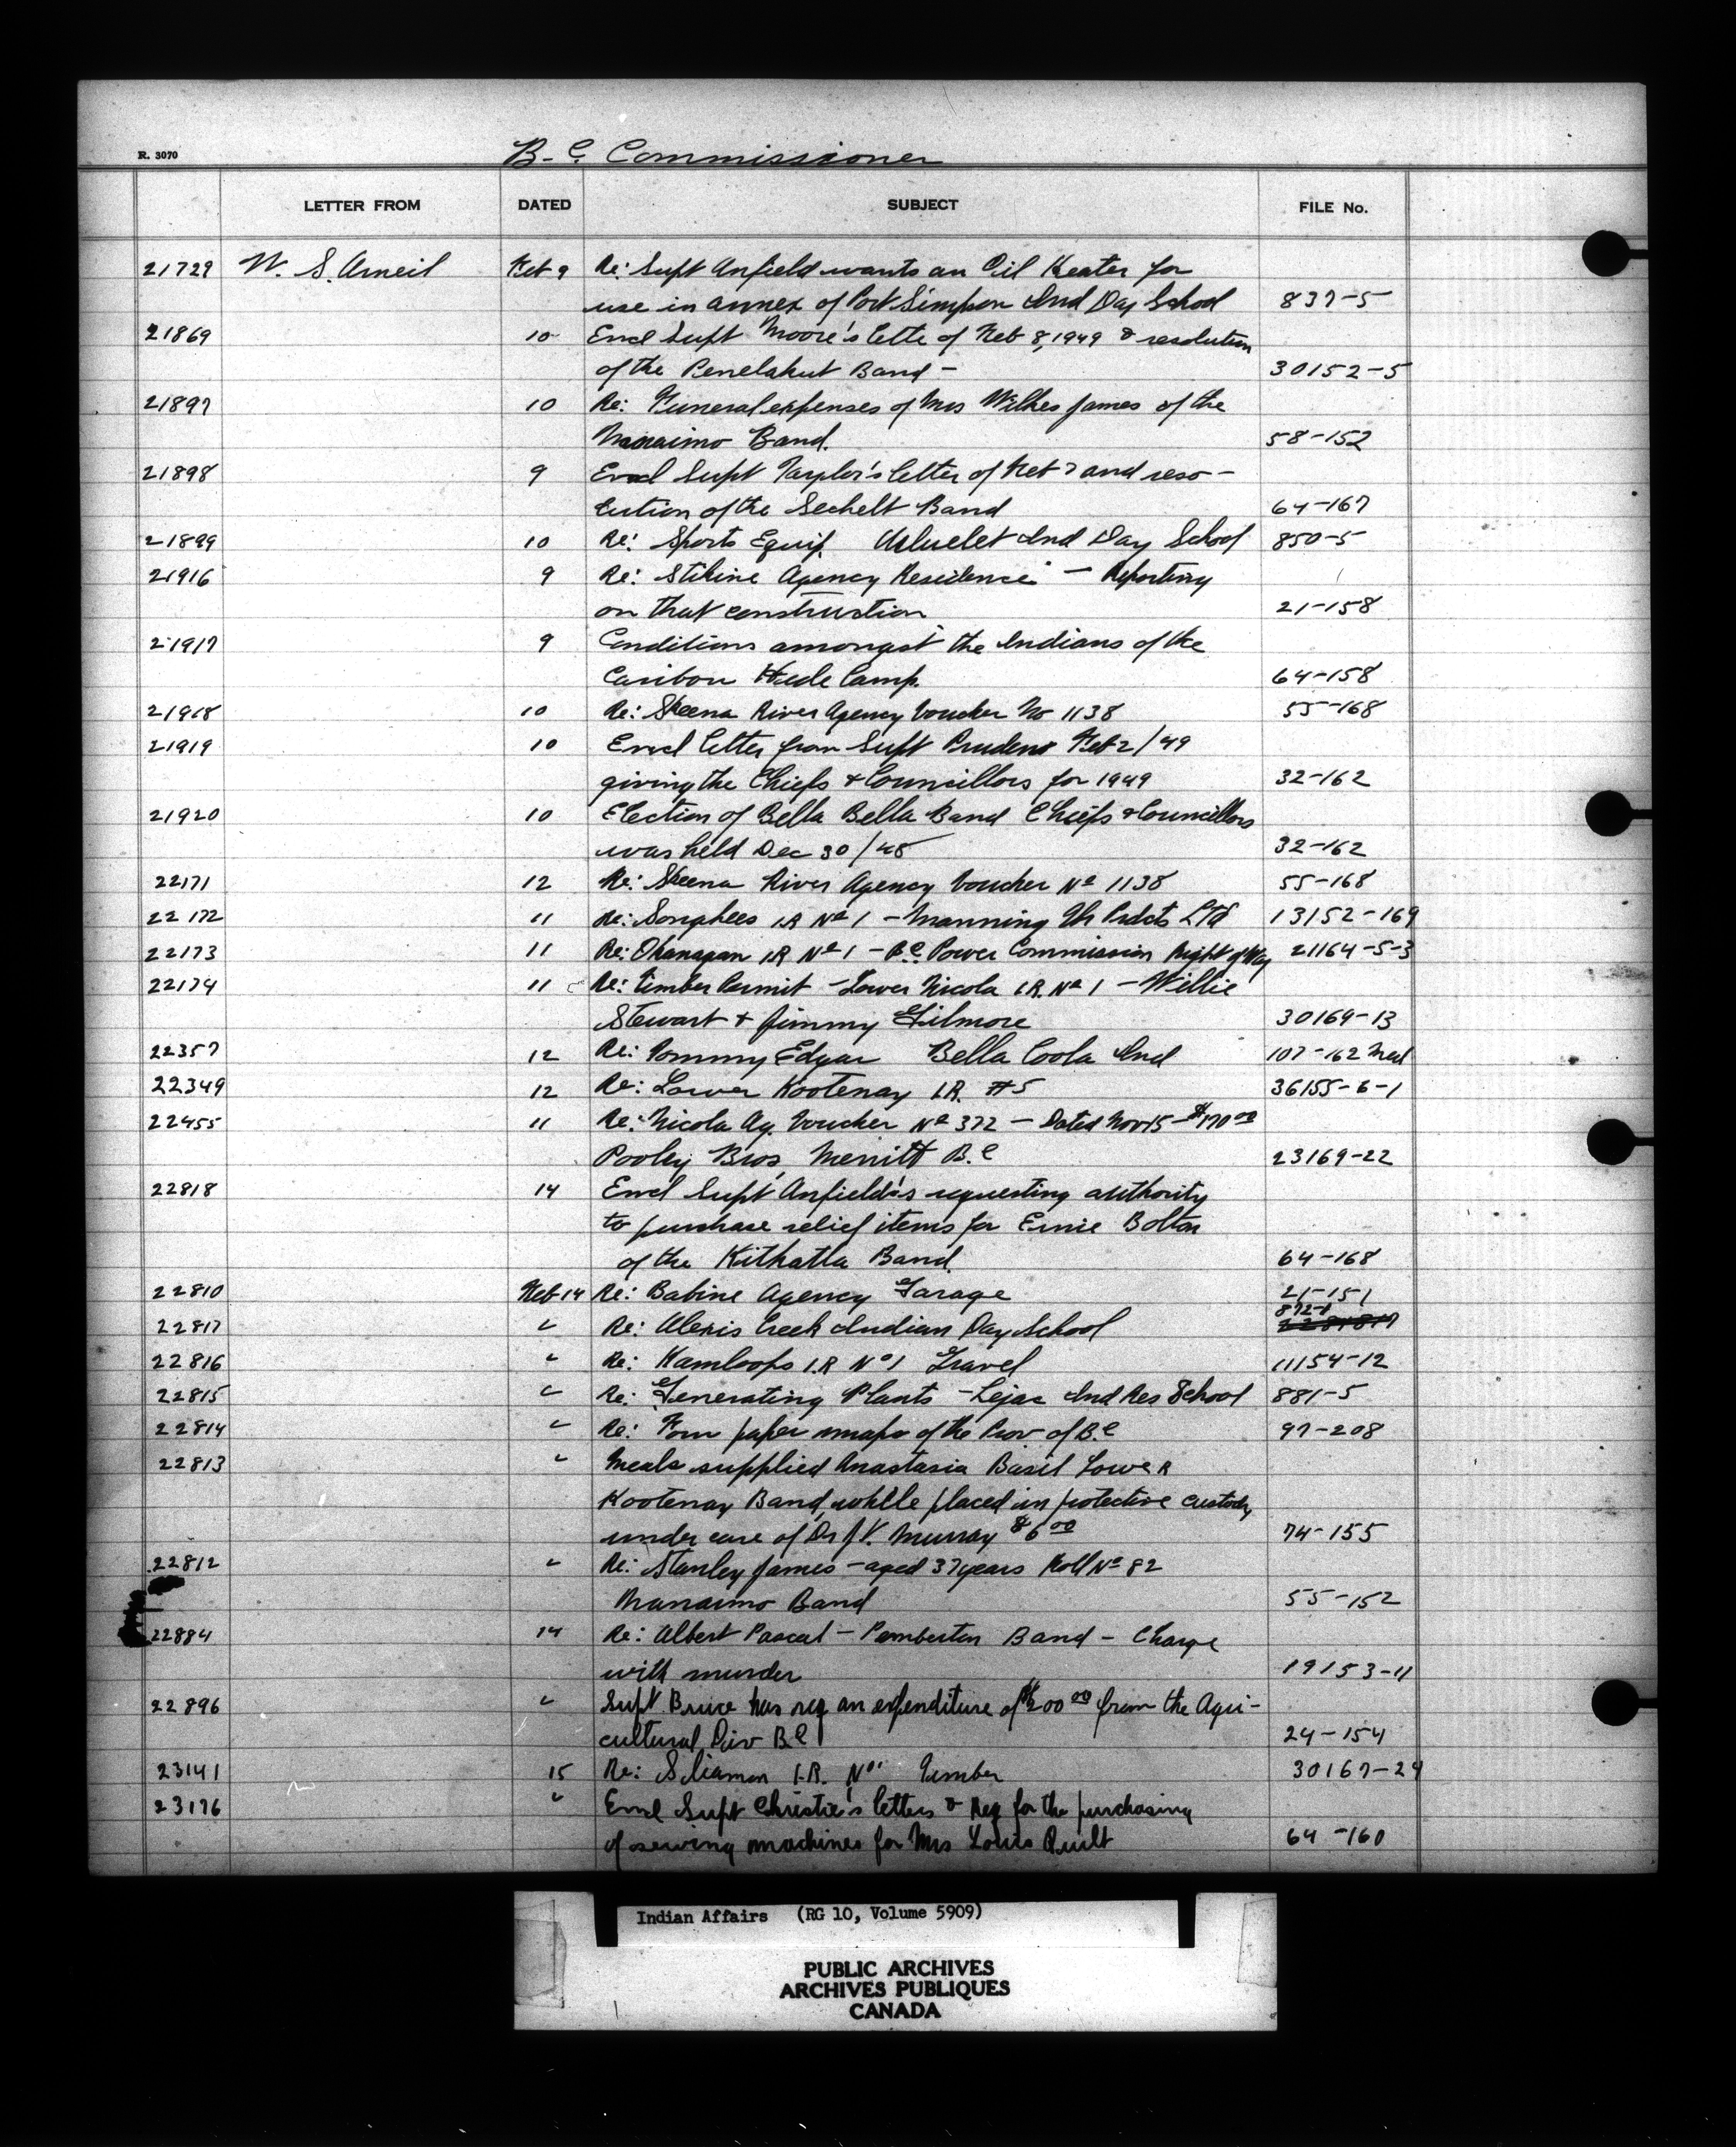 R. 3070
B.C. Commissioner
LETTER FROM DATED SUBJECT FILE No.
21729 W. S. Arneil Feb 9 Re: Supt Anfield wants an Oil Heater for
use in annex of Port Simpson Ind Day School 837-5
21869 10 Encl Supt Moore's lette of Feb 8, 1949 & resolution
of the Penelakut Band - 30152-5
21897 10 Re: Funeral expenses of Mrs Wilkes James of the
Nanaimo Band. 58-152
21898 9 Encl Supt Taylor's letter of Feb 7 and reso-
lution of the Sechelt Band 64-167
21899 10 Re: Sports Equip. Ucluelet Ind Day School 850-5
21916 9 Re: Stikine Agency Residence - Reporting
on that construction 21-158
21917 9 Conditions amongst the Indians of the
Caribou Hide Camp. 64-158
21918 10 Re: Skeena River Agency Voucher No 1138 55-168
21919 10 Encl letter from Supt Pruden Feb 2/49
giving the Chiefs & Councillors for 1949 32-162
21920 10 Election of Bella Bella Band Chiefs & Councillors
was held Dec 30/48 32-162
22171 12 Re: Skeena River Agency Voucher No 1138 55-168
22172 11 Re: Songhees I.R No 1 - Manning Prdcts Ltd 13152-169
22173 11 Re: Okanagan I.R No 1 - B.C. Power Commission Right of Way 21164-5-3
22174 11 Re: Timber Permit - Lower Nicola I.R. No 1 - Willie
Stewart & Jimmy Gilmore 30169-13
22357 12 Re: Tommy Edgar Bella Coola Ind 107-162 Med
22349 12 Re: Lower Kootenay I.R. #5 36155-6-1
22455 11 Re: Nicola Ag. Voucher No 372 - Dated Nov 15 - $170.00
Pooley Bros, Merritt B.C 23169-22
22818 14 Encl Supt Anfield's requesting authority
to purchase relief items for Ernie Bolton
of the Kitkatla Band. 64-168
22810 Feb 14 Re: Babine Agency Garage 21-151
22817 " Re: Alexis Creek Indian Day School 872-1
22816 " Re: Kamloops I.R No 1 Gravel 11154-12
22815 " Re: Generating Plants - Lejac Ind Res School 881-5
22814 " Re: Four paper maps of the Prov of B.C 97-208
22813 " Meals supplied Anastasia Basil Lower
Kootenay Band, while placed in protective custody
under care of Dr J.V. Murray $6.00 74-155
22812 " Re: Stanley James - aged 37 years Roll No 82
Nanaimo Band 55-152
22884 14 Re: Albert Pascal - Pemberton Band - Charge
with murder 19153-11
22896 " Supt Bruce has req an expenditure of $200.00 from the Agri-
cultural Div B.C 24-154
23141 15 Re: Sliamon I.R. No 1 Timber 30167-24
23176 " Encl Supt Christie's letters & Req for the purchasing
of sewing machines for Mrs Louis Quilt 64-160
Indian Affairs (RG 10, Volume 5909)
PUBLIC ARCHIVES
ARCHIVES PUBLIQUES
CANADA